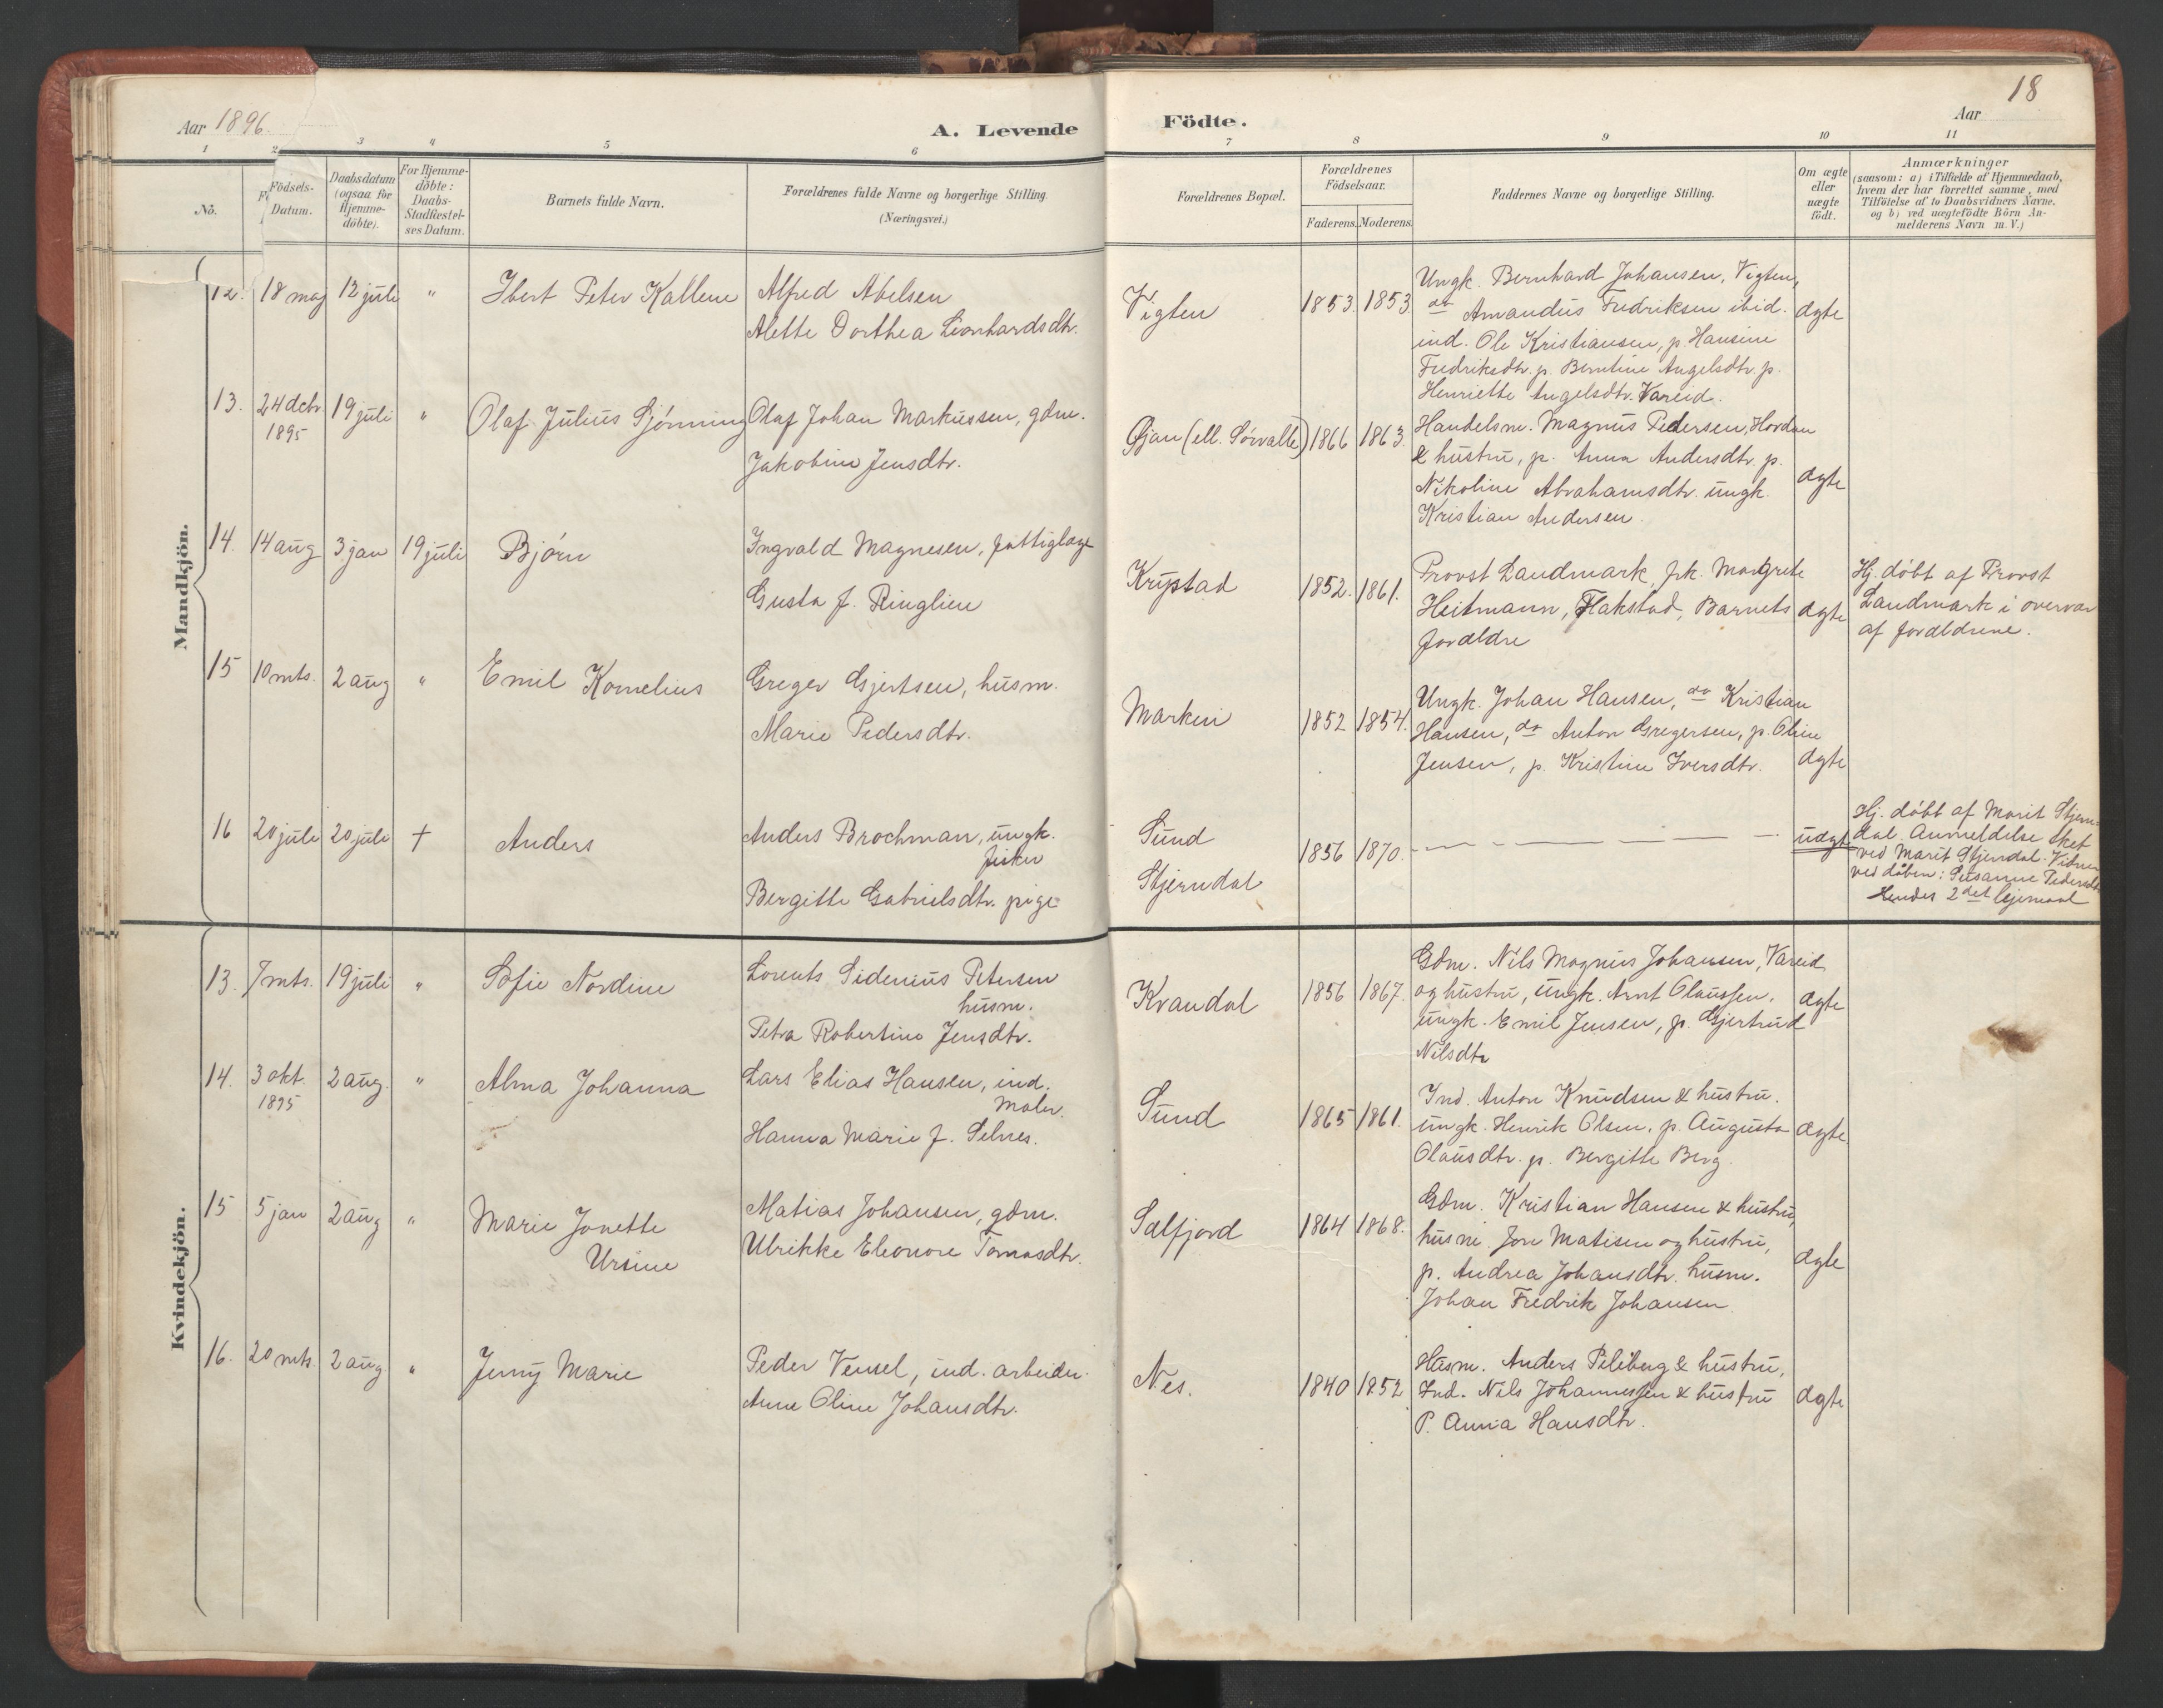 18
Aar 1896.
A. Levende Födte.
Aar
1 2 3 4 5 6 7 8 9 10 11
No.
Födsels-
Datum.
Daabsdatum
(ogsaa for
Hjemme-
döbte).
For Hjemme-
döbte:
Daabs-
Stadfæstel-
ses Datum.
Barnets fulde Navn.
Forældrenes fulde Navne og borgerlige Stilling.
(Næringsvei.)
Forældrenes Bopæl.
Forældrenes
Födselsaar.
Faderens. Moderens.
Faddernes Navne og borgerlige Stilling.
Om ægte
eller
uægte
födt.
Anmærkninger
(saasom: a) i Tilfælde af Hjemmedaab,
hvem der har forrettet samme, med
Tilföielse af to Daabsvidners Navne,
og b) ved uægtefödte Börn An-
melderens Navn m. V.)
Mandkjön.
12. 18 maj 12 juli " Ibert Peter Kallene
Alfred Abelsen
Alette Dorthea Leonhardsdtr.
Vigten 1853. 1853.
Ungk. Bernhard Johansen, Vigten,
do Amandus Fredriksen ibid.
ind. Ole Kristiansen, p. Hansine
Fredriksdtr. p. Berntine Angelsdtr. p.
Henriette Angelsdtr. Vareid.
ægte
13. 24 decbr 1895 19 juli " Olaf Julius Sjónning
Olaf Johan Markussen, gdm.
Jakobine Jensdtr.
Øjan (ell. Sórvalle) 1866 1863.
Handelsm. Magnus Pedersen, Hordan
& hustru, p. Anna Andersdtr. p.
Nikoline Abrahamsdtr. ungk.
Kristian Andersen.
ægte
14. 14 aug 3 jan 19 juli Bjórn
Ingvald Magnesen, fattiglæge
Gusta f. Ringlien
Krystad 1852. 1861.
Provst Landmark, frk. Margrete
Heitmann, Flakstad, Barnets
forældre
ægte
Hj. dóbt af Provst
Landmark i overvær
af forældrene.
15 10 mts. 2 aug " Emil Kornelius
Greger Gjertsen, husm.
Marie Pedersdtr.
Marken 1852 1854.
Ungk. Johan Hansen, do Kristian
Hansen, do Anton Gregersen, p. Oline
Jensen, p. Kristine Iversdtr.
ægte
16 20 juli 20 juli + Anders
Anders Brochman, ungk.
fisker
Bergitte Gabrielsdtr. pige
Sund
Stjerndal
1856 1870.
uægte
Hj. dóbt af Marit Stjern=
dal. Anmeldelse sket
ved Marit Stjerndal. Vidner
ved dåben: Susanne Pedersdtr
Hendes 2det lejermaal
Kvindekjön.
13. 7 mts. 19 juli " Sofie Nordine
Lorents Sidenius Petersen
husm.
Petra Robertine Jensdtr.
Kvandal 1856 1867.
Gdm. Nils Magnus Johansen, Vareid
og hustru, ungk. Arnt Olaussen,
ungk. Emil Jensen, p. Gjertrud
Nilsdtr
ægte
14. 3 okt. 1895 2 aug. " Alma Johanna
Lars Elias Hansen, ind.
Maler.
Hanna Marie f. Selnes.
Sund 1865 1861.
Ind. Anton Knudsen & hustru.
ungk. Henrik Olsen, p. Augusta
Olausdtr. p. Bergitte Berg.
ægte
15 5 jan 2 aug " Marie Jonette
Ursine
Matias Johansen, gdm.
Ulrikke Eleonore Tomasdtr.
Selfjord 1864 1868.
Gdm. Kristian Hansen & hustru,
husm. Jon Matisen og hustru,
p. Andrea Johansdtr. husm.
Johan Fredrik Johansen.
ægte
16. 20 mts. 2 aug " Jenny Marie
Peder Vensel, ind. arbeider
Anne Oline Johansdtr.
Nes. 1840 1852
Husm. Anders Peliberg & hustru,
Ind. Nils Johannessen & hustru
P. Anna Hansdtr.
ægte